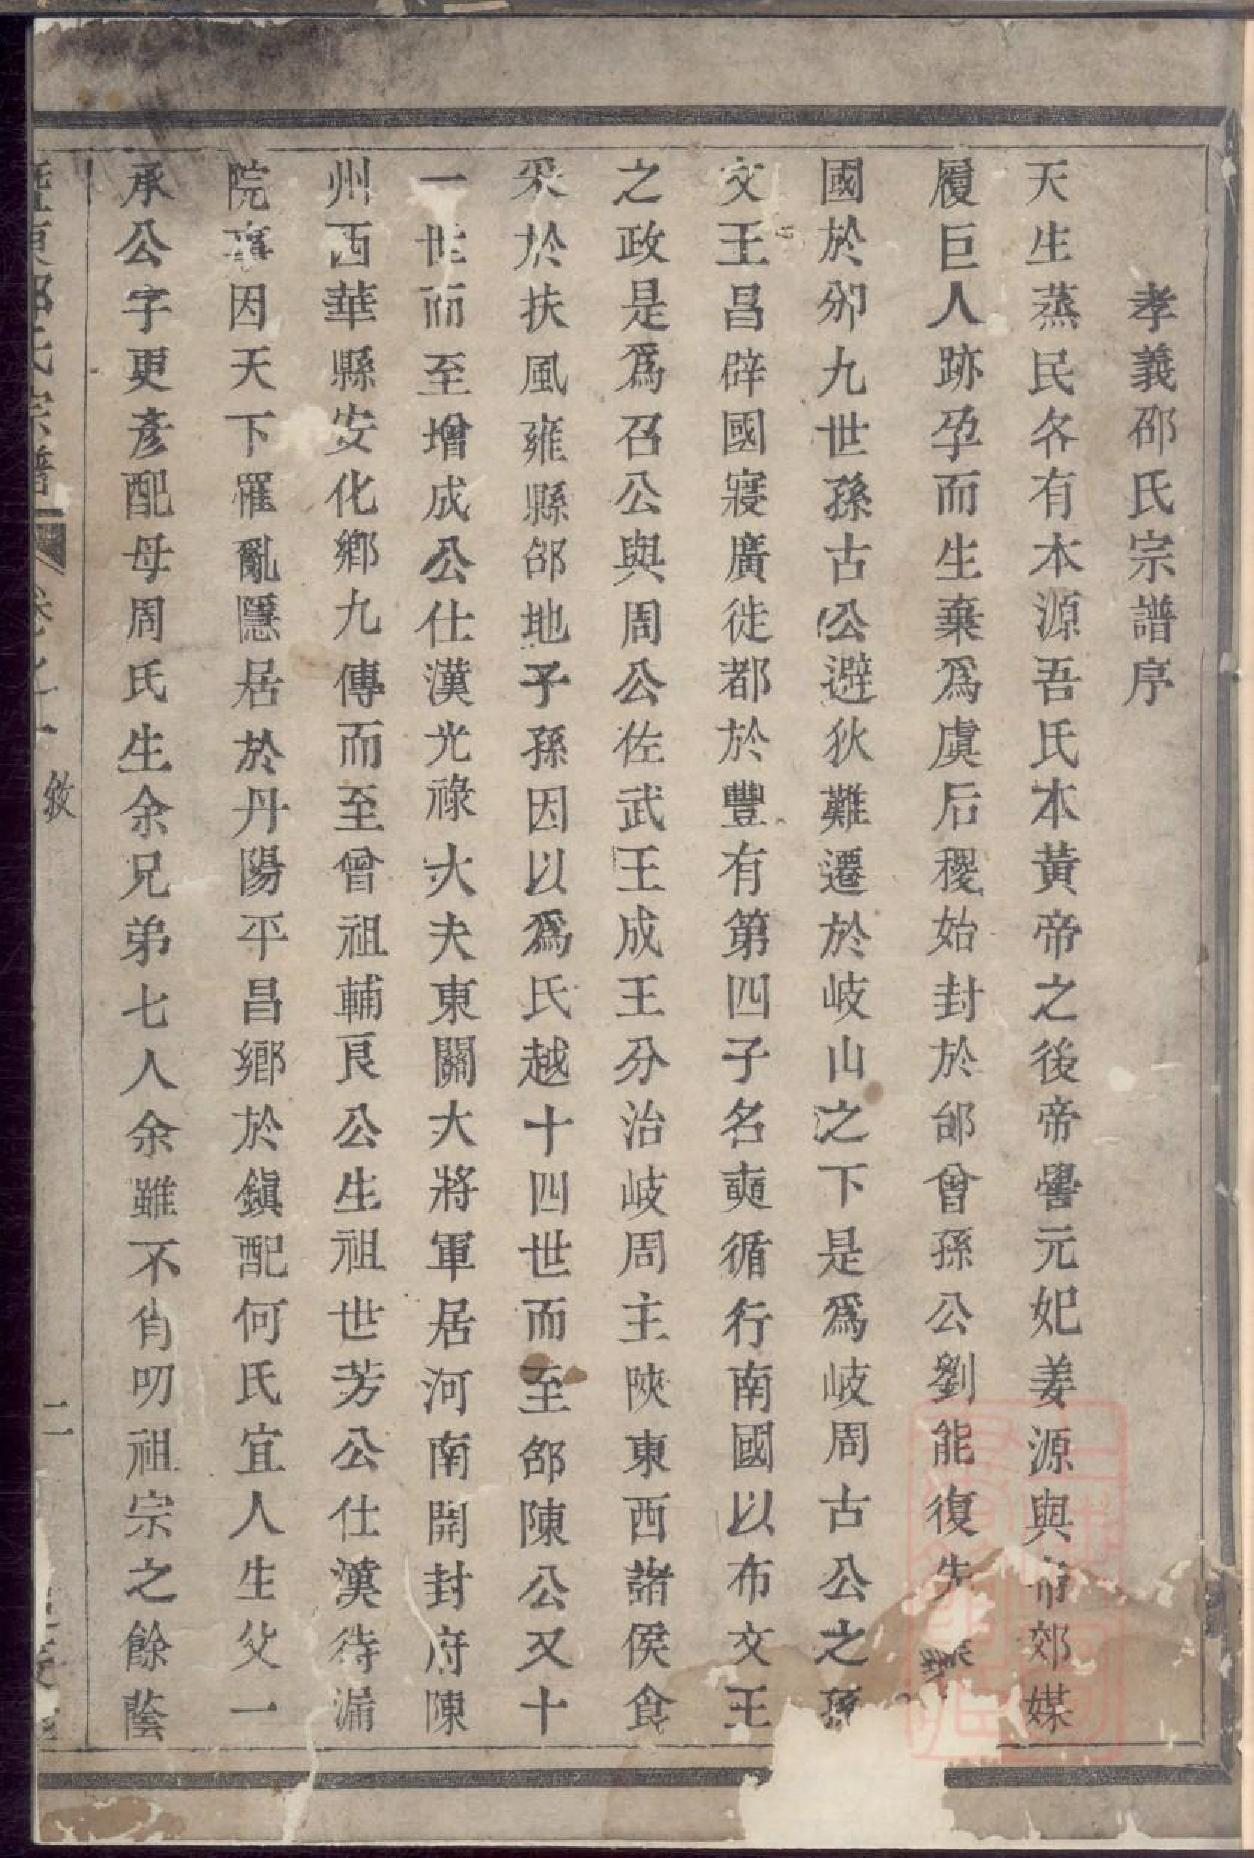 孝義邵氏宗譜序
天生蒸民各有本源吾氏本黃帝之後帝嚳元妃姜源與帝郊媒
履巨人跡孕而生棄爲虞后稷始封於邰曾孫公劉能復先業
國於邠九世孫古公避狄難遷於岐山之下是爲岐周古公之孫
文王昌辟國寢廣徙都於豐有第四子名奭循行南國以布文王
之政是爲召公與周公佐武王成王分治岐周主陝東西諸侯食
采於扶風雍縣邵地子孫因以爲氏越十四世而至邵陳公又十
一世而至增成公仕漢光祿大夫東關大將軍居河南開封府陳
州西華縣安化鄉九傳而至曾祖輔良公生祖世芳公仕漢待漏
院事因天下罹亂隱居於丹陽平昌鄉於鎭配何氏宜人生父一
承公字更彥配母周氏生余兄弟七人余雖不肖叨祖宗之餘蔭
邵氏宗譜 卷之一 敘 二